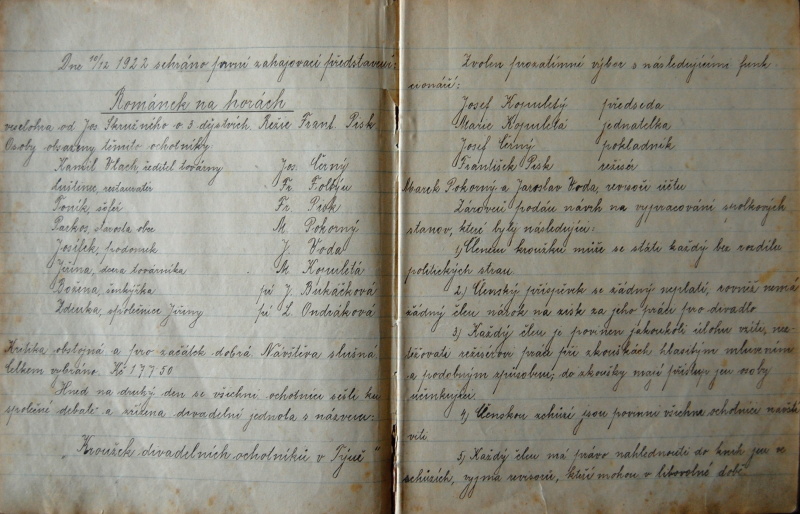 Dne 10/12 1922 sehráno první zahajovací představení:
Románek na horách
veselohra od Jos. Skružného o 3 dějstvích. Režie Frant. Písk
Osoby obsazeny těmito ochotníky
Kamil Vlach, ředitel továrny Jos. Černý
restaurater Fr.
Toník, šofér Fr. Písk
Parkos, starosta obce M. Pokorný
Josífek, podomek J. Voda
Jiřina, dcera továrníka M. Kopuletá
Božena, pí J. Bukáčková
Zdenka, společnice Jiřiny pí L. Ondráková
Kritika obstojná a pro začátek dobrá. Návštěva slušná
Celkem vybráno Kč 177.50
Hned na druhý den se všichni ochotníci sešli ku
společné debatě a zřízena divadelní jednota s názvem:
„Kroužek divadelních ochotníků v Týně"
Zvolen prozatímní výbor s následujícími funk-
cionáři:
Josef Kopuletý předseda
Marie Kopuletá jednatelka
Josef Černý pokladník
František Písk režisér
Marek Pokorný a Jaroslav Voda, revisoři účtu
Zároveň podán návrh na vypracování spolkových
stanov, které byly následující:
1) Členem kroužku může se státi každý bez rozdílu
politických stran.
2) Členský příspěvek se žádný neplatí, rovněž nemá
žádný člen nárok na zisk za jeho práci pro divadlo
3) Každý člen je povinen jakoukoli úlohu vzíti, ne-
ztěžovati režisérovi práci při zkouškách hlasitým mluvením
a podobným způsobem; do zkoušky mají přístup jen osoby
účinkující.
4) Členskou schůzi jsou povinni všichni ochotníci navští-
viti
5) Každý člen má právo nahlédnouti do knih jen ve
schůzích, vyjma revisorů, kteří mohou v libovolné době.